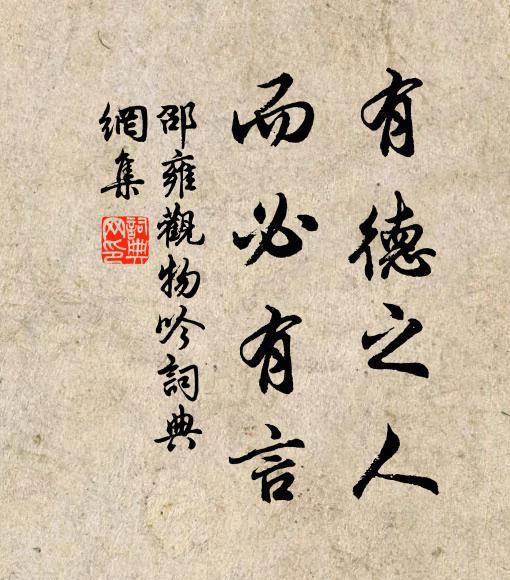 有德之人
而必有言
邵雍觀物吟詞典
網集
詞典
网印